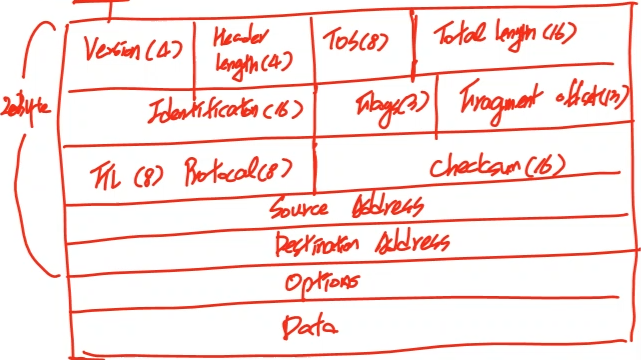 Version (4) Header length (4) TOS (8) Total length (16)
20Byte
Identification (16) Flags (3) Fragment offset (13)
TTL (8) Protocal (8) Checksum (16)
Source Address
Destination Address
Options
Data